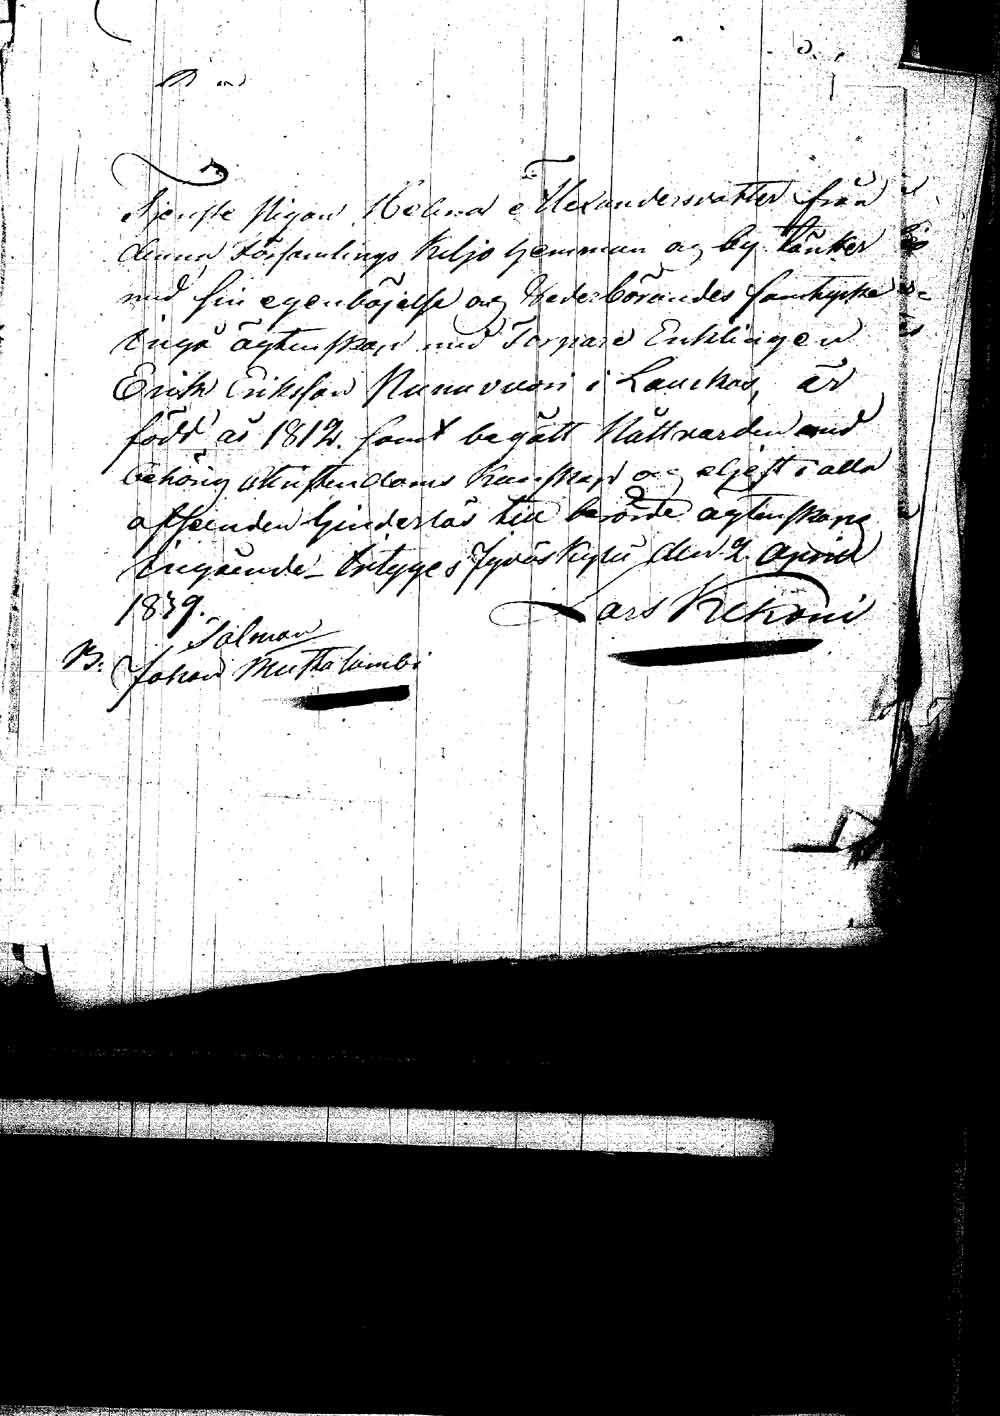 Tjenste pigan Helena Alexandersdotter från
denna Församlings Keljo hemman og by tänker
med sin egen böjelse og Vederbörandes samtycke
ingå ägtenskap med Torpare Enklingen
Erik Eriksson Nunnvuori i Laukas, är
född år 1812. samt begått Nattvarden med
behörig Christendoms Kunskap og eljest i alla
afseenden hinderlös till berörde ägtenskaps
ingående Intyges Jyväskylä den 2 April
1839.
Lars Kekoni
Solman
Johan Muttalambi